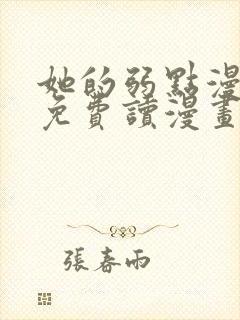 她的弱點漫
免費讀漫畫
張春雨